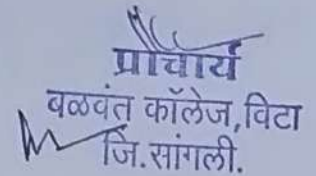 प्राचार्य
बळवंत कॉलेज,विटा
जि.सांगली.